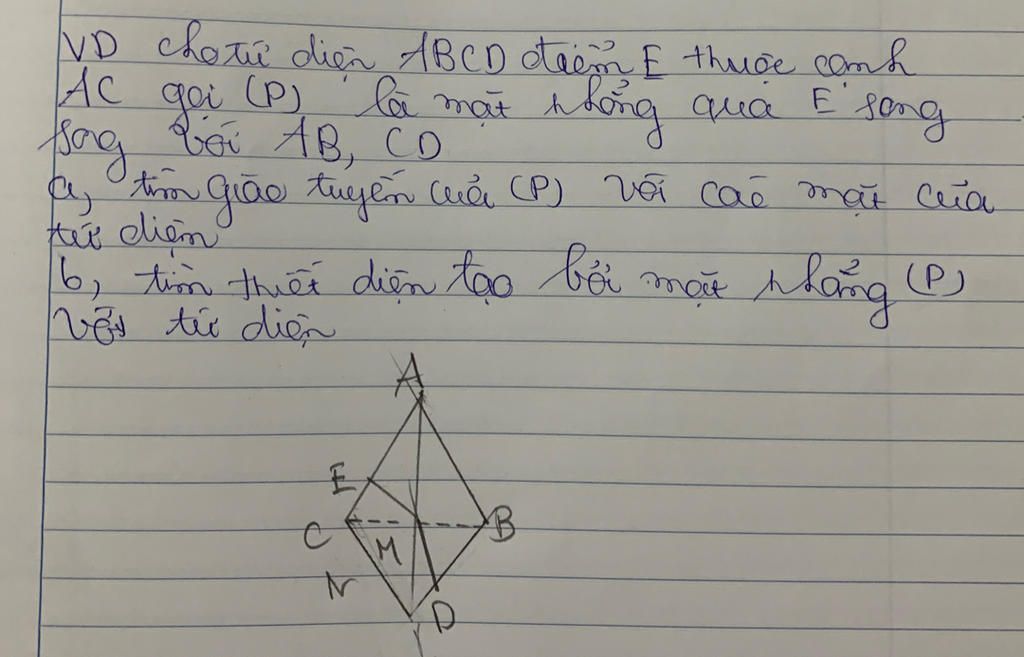 VD cho tứ diện ABCD điểm E thuộc cạnh
AC gọi (P) là mặt phẳng qua E song
song với AB, CD
a, tìm giao tuyến của (P) với các mặt của
tứ diện
b, tìm thiết diện tạo bởi mặt phẳng (P)
với tứ diện
A
E
C M B
N D